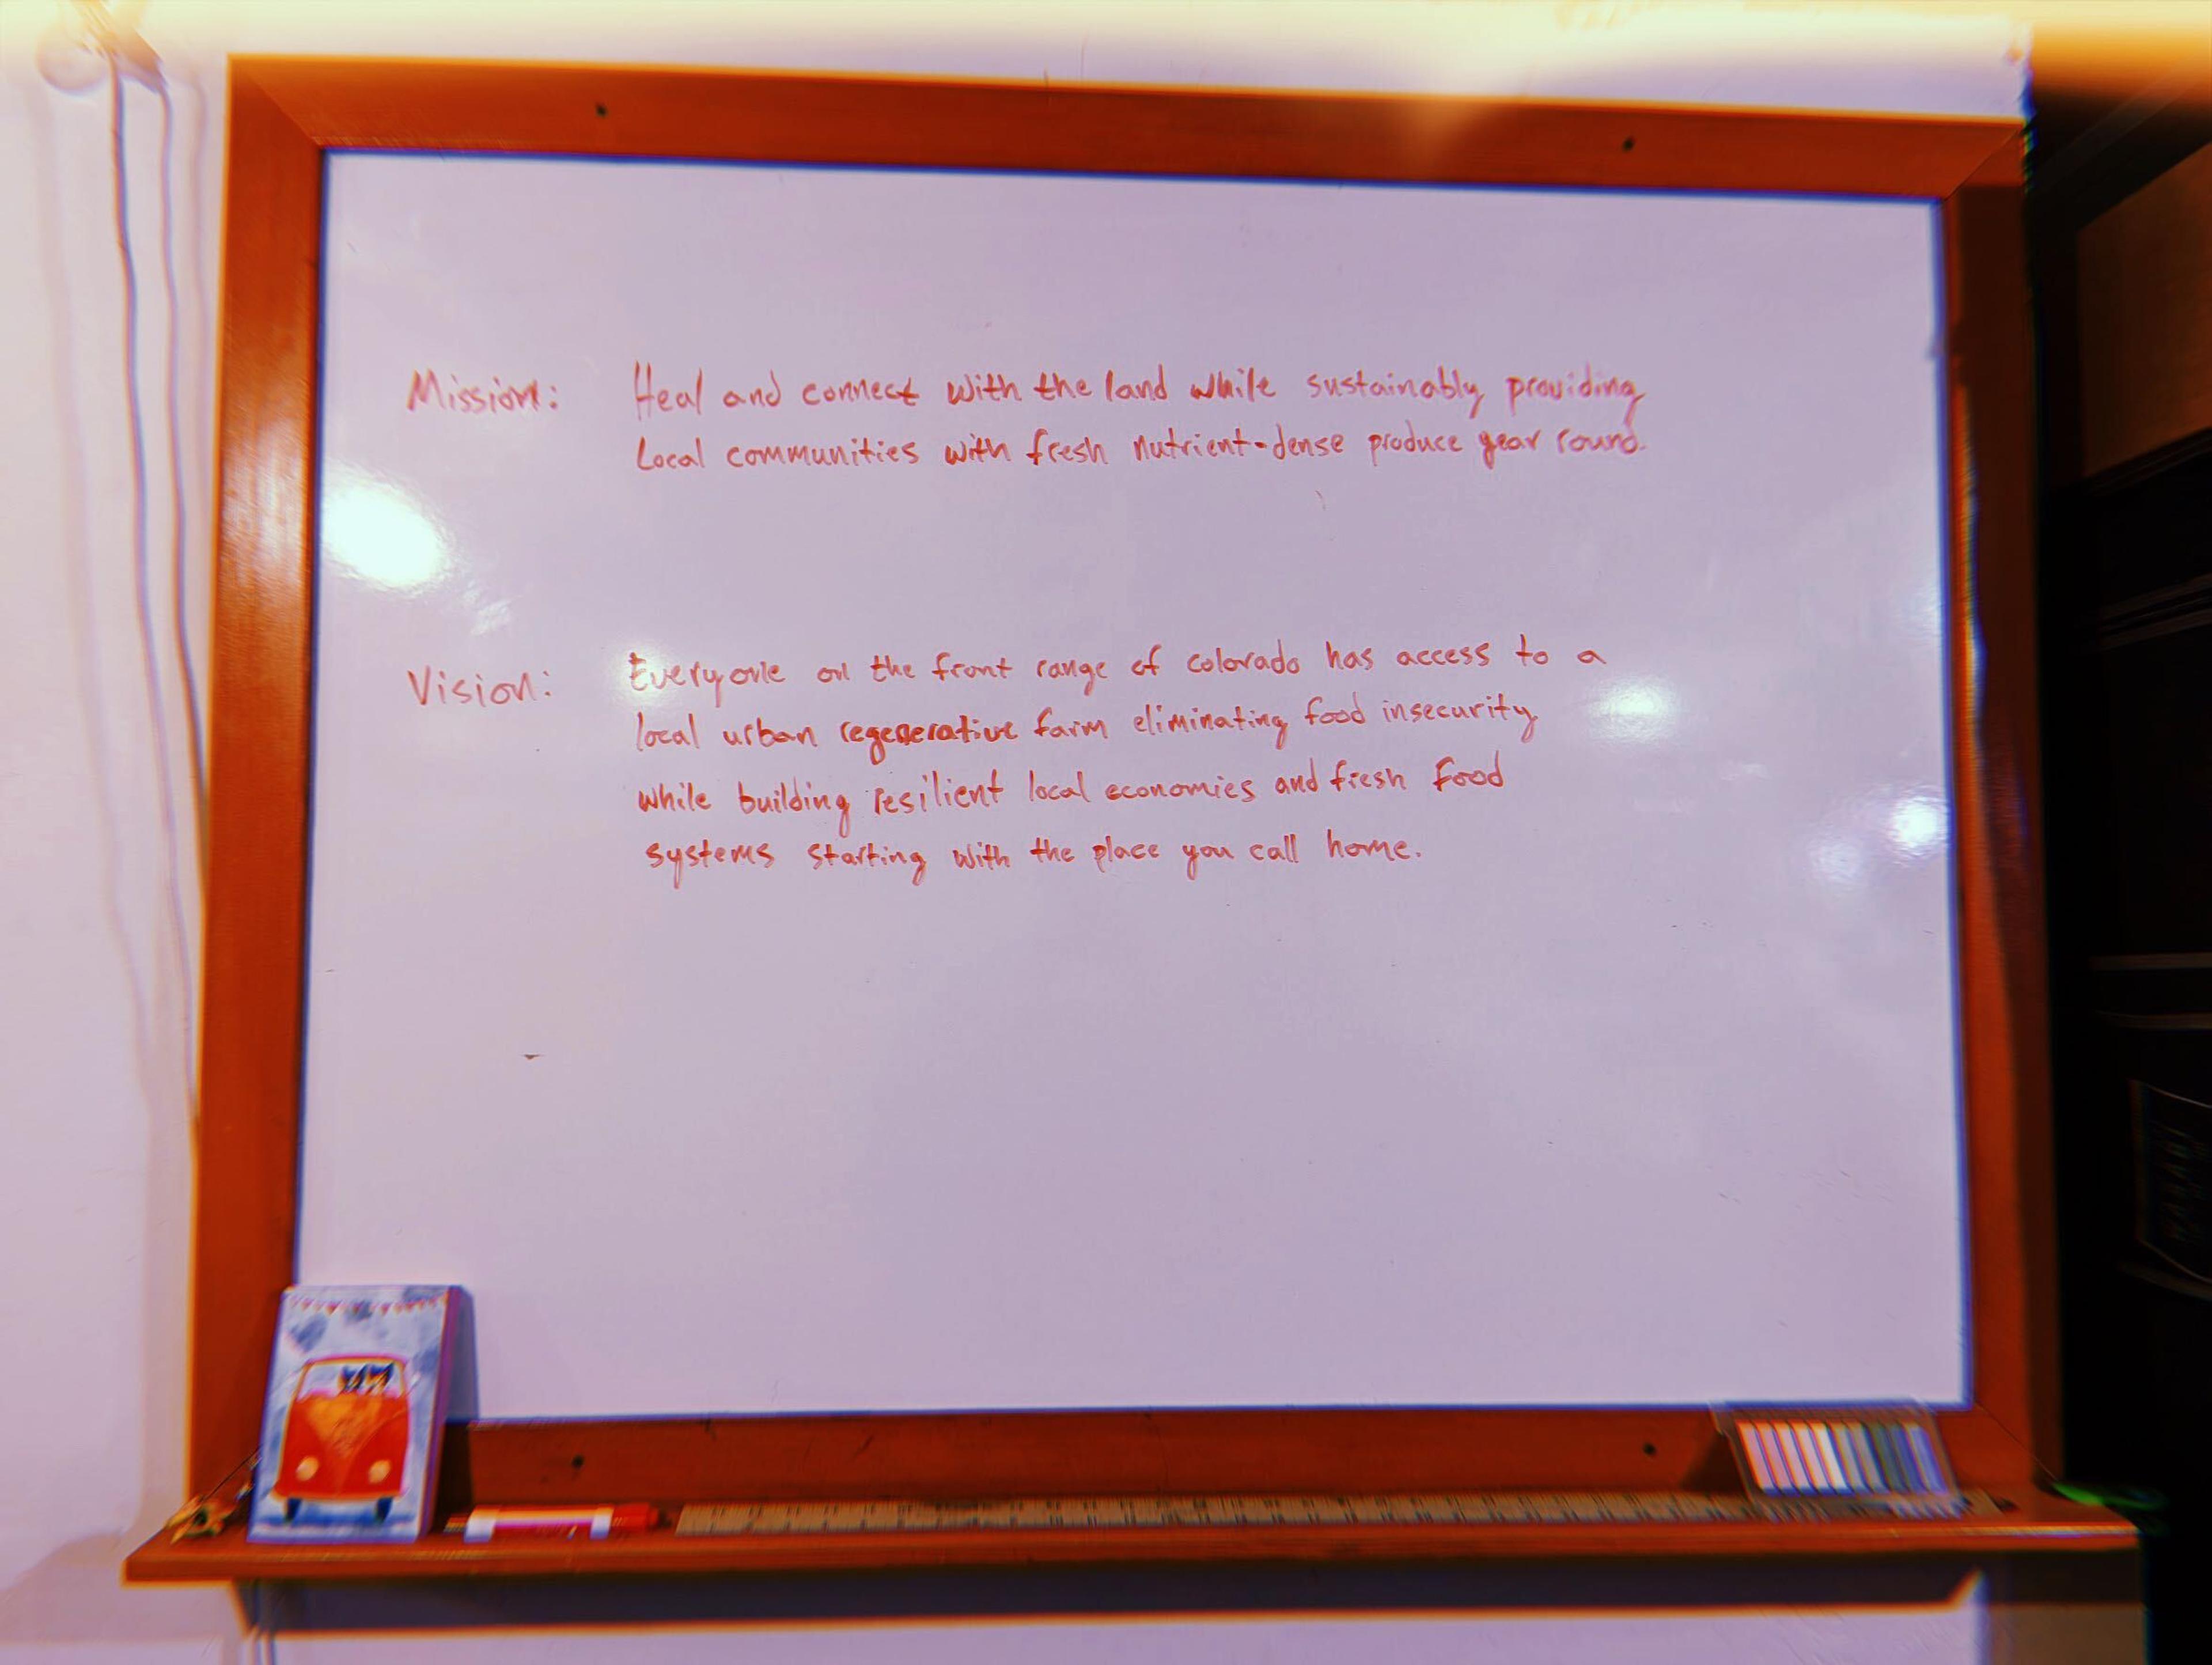 Mission: Heal and connect with the land while sustainably providing
Local communities with fresh nutrient-dense produce year round.
Vision: Everyone on the front range of colorado has access to a
local urban regenerative farm eliminating food insecurity
while building resilient local economies and fresh food
systems starting with the place you call home.